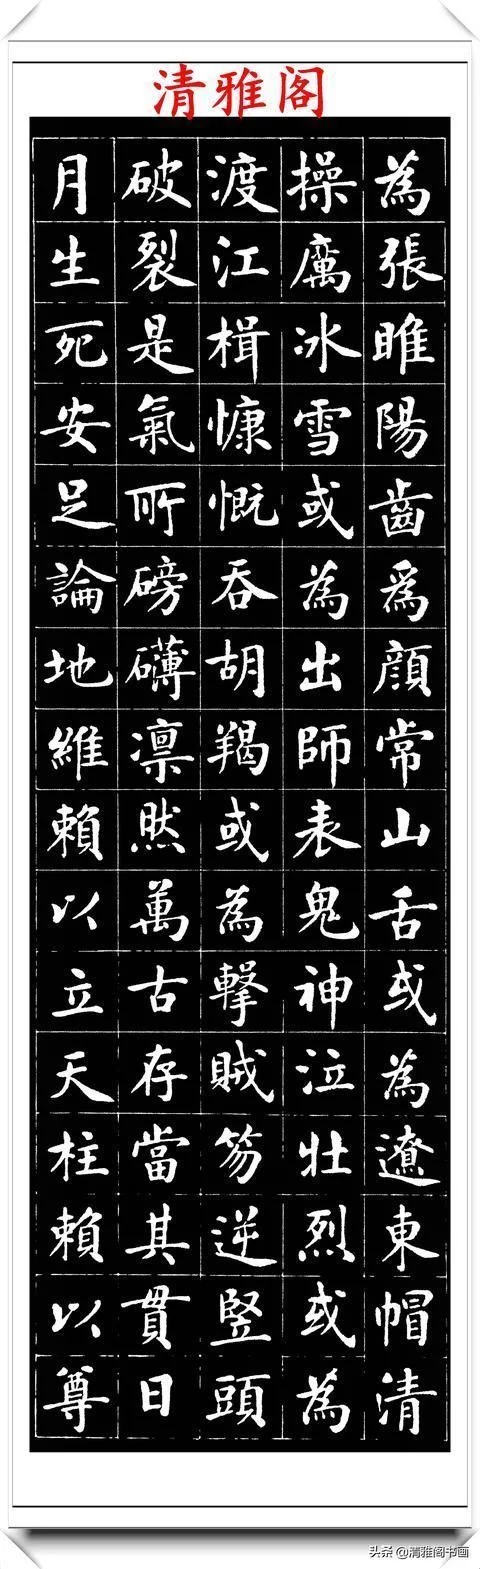 清雅阁
為張睢陽齒爲顔常山舌或為遼東帽清
操厲冰雪或為出師表鬼神泣壯烈或為
渡江楫慷慨吞胡羯或為擊賊笏逆竪頭
破裂是氣所磅礴凛然萬古存當其貫日
月生死安足論地維賴以立天柱賴以尊
头条@清雅阁书画